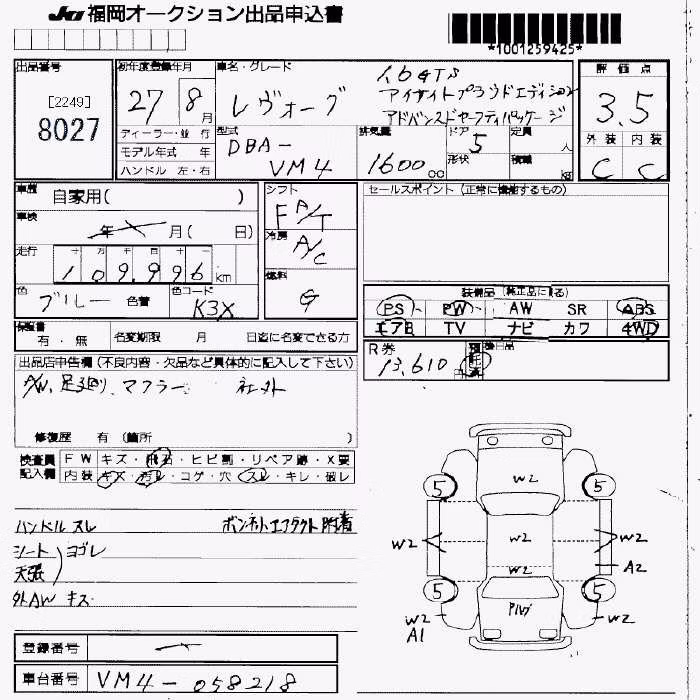 JU 福岡オークション出品申込書
*1001259425*
出品番号
[2249]
8027
初年度登録年月
27 8月
ディーラー・並 行
モデル年式 年
ハンドル 左・右
車名・グレード
レヴォーグ
1.6GTS
アイサイトプラウドエディション
アドバンスドセーフティパッケージ
型式
DBA-
VM4
排気量
1600 cc
ドア
5
形状
定員
人
積載
kg
評価点
3.5
外装 内装
C C
車歴
自家用( )
車検
年 月( 日)
走行
十 万 千 百 十 一
109,996 km
色
ブルー 色替
色コード
K3X
シフト
F A/T
冷房
A/C
燃料
G
保証書
有・無 名変期限 月 日迄に名変できる方
セールスポイント (正常に機能するもの)
装備品 (純正品に限る)
PS PW AW SR ABS
エアB TV ナビ カワ 4WD
R券
13,610 円
預託済
後日品
出品店申告欄 (不良内容・欠品など具体的に記入して下さい)
A/W、足廻り、マフラー 社外
修復歴 有 (箇所 )
検査員記入欄
FW キズ・飛石・ヒビ割・リペア跡・X要
内装 キズ・汚れ・コゲ・穴・スレ・キレ・破レ
ハンドル スレ ボンネットエアダクト 附着
シート ヨゴレ
天張
外AW キズ
W2
5 5
W2 W2 W2
A2
W2
5 5
PルーフW
W2 A1
W2
登録番号 ー
車台番号 VM4-058218